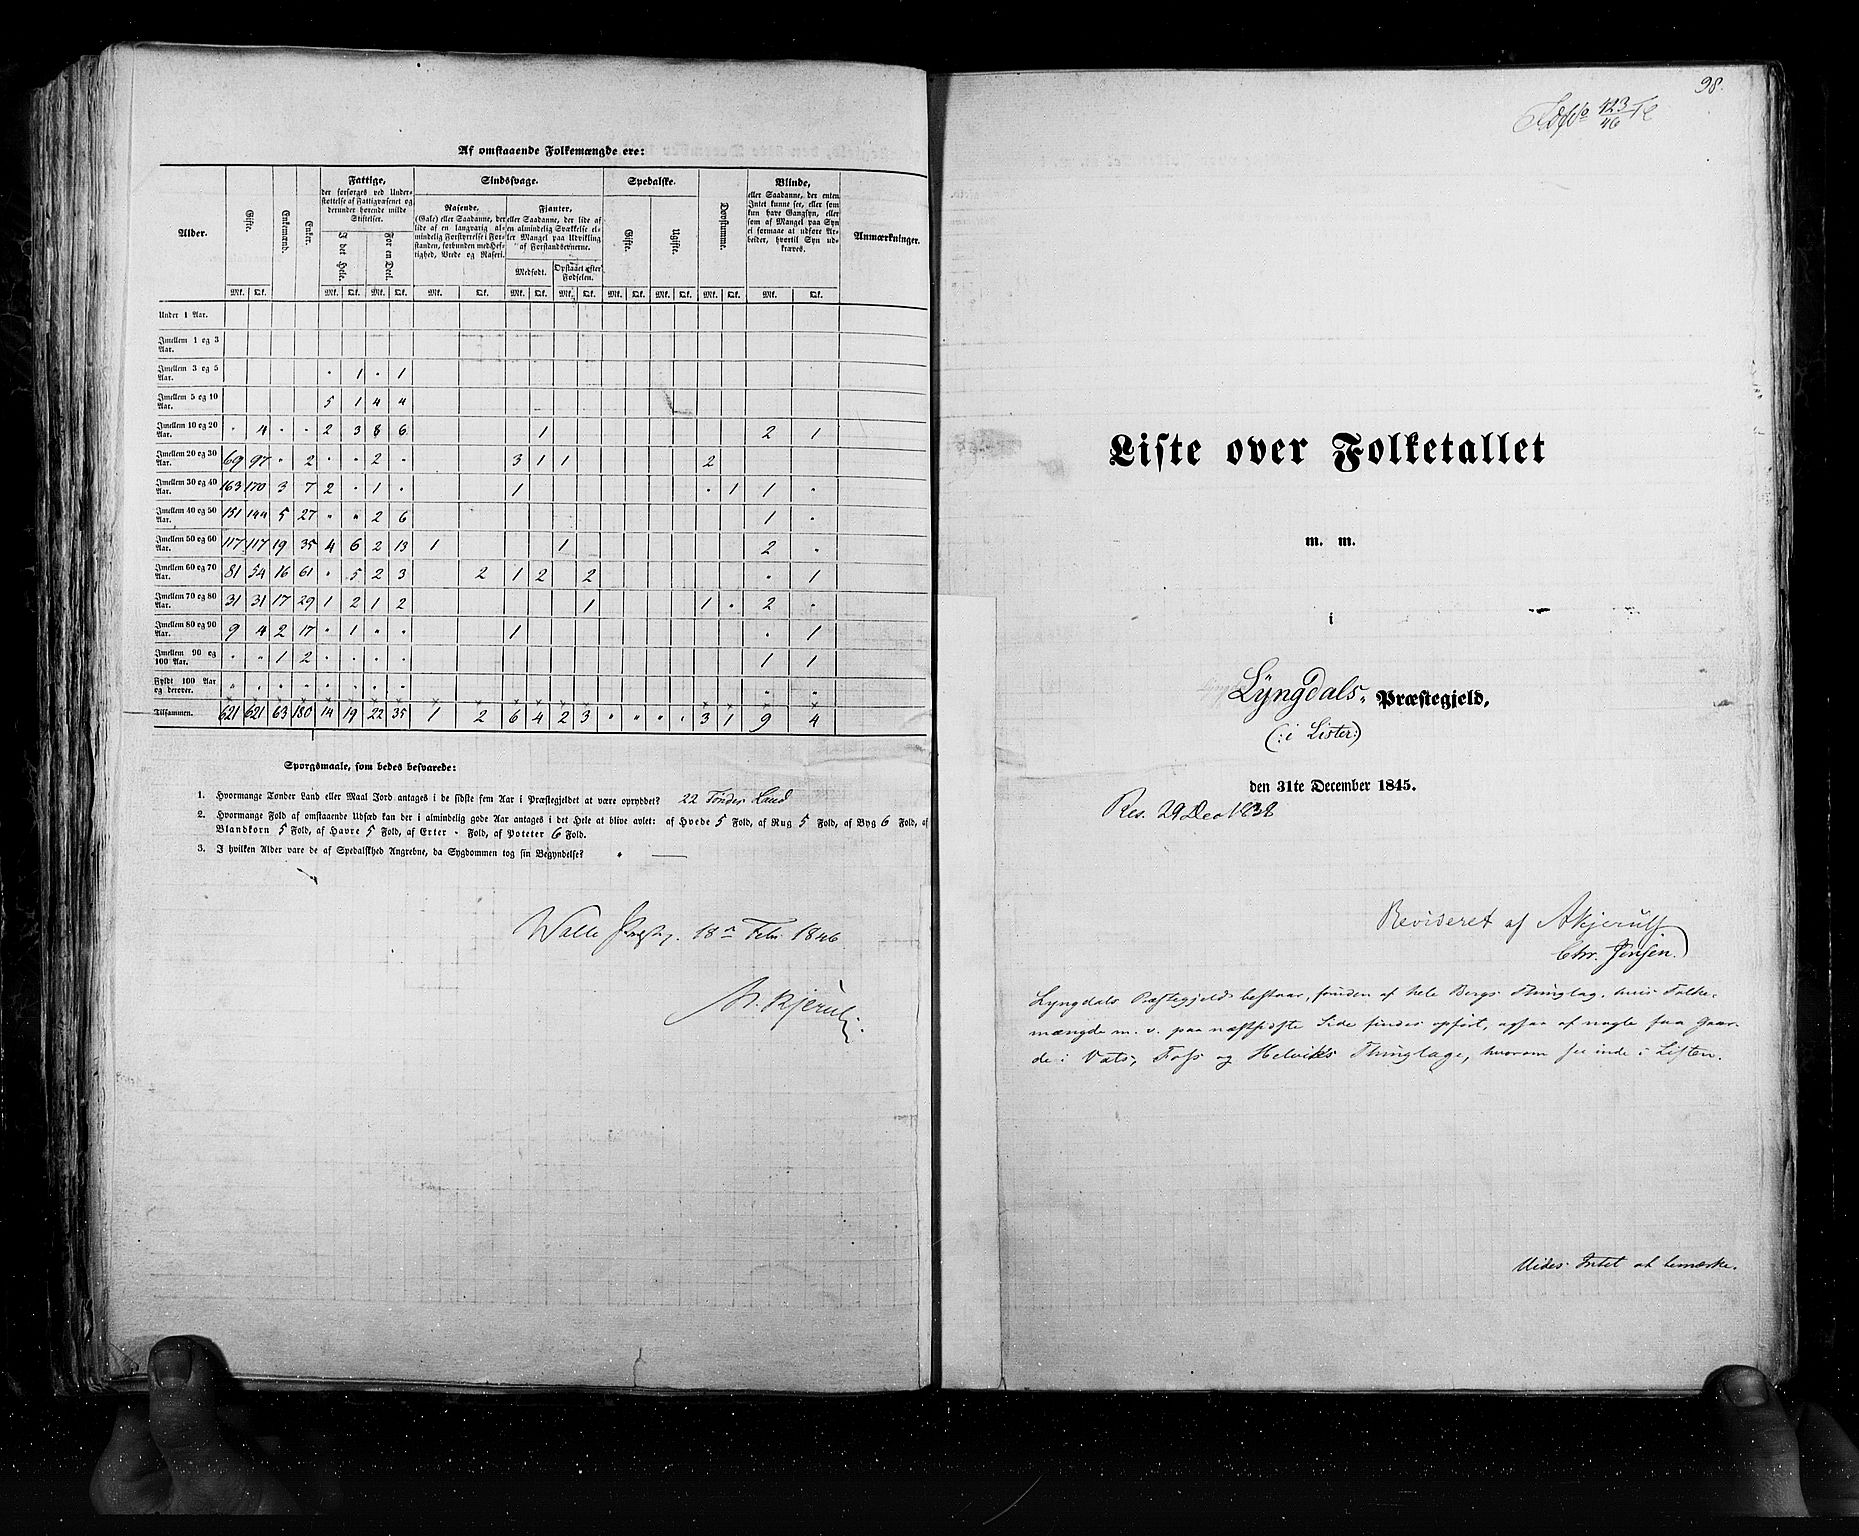 Af omstaaende Folkemængde ere:
Alder. Gifte. Enkemænd. Enker. Fattige, der forsørges ved Understøttelse af Fattigvæsenet og derunder hørende milde Stiftelser. Sindssvage. Spedalske. Døvstumme. Blinde, eller Saadanne, der enten Intet kunne see, eller som kun have Gangsyn, eller som af Mangel paa Syn ei formaae at udføre Arbeider, hvortil Syn udkræves. Anmærkninger.
I det Hele. For en Deel. Rasende, (Gale) eller Saadanne, der lide af en langvarig almindelig Forstyrrelse i Forstanden, forbunden med Heftighed, Vrede og Raseri. Fjanter, eller Saadanne, der lide af en almindelig Svækkelse eller Mangel paa Udvikling af Forstandsevnerne. Gifte. Ugifte.
Medfødt. Opstaaet efter Fødselen.
Mk. Qk. Mk. Qk. Mk. Qk. Mk. Qk. Mk. Qk. Mk. Qk. Mk. Qk. Mk. Qk. Mk. Qk. Mk. Qk.
Under 1 Aar.
Imellem 1 og 3 Aar.
Imellem 3 og 5 Aar. " 1 " 1
Imellem 5 og 10 Aar. 5 1 4 4
Imellem 10 og 20 Aar. " 4 " " 2 3 8 6 1 2 1
Imellem 20 og 30 Aar. 69 97 " 2 " " 2 " 3 1 1 2
Imellem 30 og 40 Aar. 163 170 3 7 2 " 1 " 1 " 1 1 "
Imellem 40 og 50 Aar. 151 144 5 27 " " 2 6 1 "
Imellem 50 og 60 Aar. 117 117 19 35 4 6 2 13 1 1 2 "
Imellem 60 og 70 Aar. 81 54 16 61 " 5 2 3 2 1 2 2 " 1
Imellem 70 og 80 Aar. 31 31 17 29 1 2 1 2 1 1 " 2 "
Imellem 80 og 90 Aar. 9 4 2 17 " 1 " " 1 " 1
Imellem 90 og 100 Aar. " " 1 2 " " " " 1 1
Fyldt 100 Aar og derover. " " " " " " " " " "
Tilsammen. 621 621 63 180 14 19 22 35 1 2 6 4 2 3 " " " " 3 1 9 4
Spørgsmaale, som bedes besvarede:
1. Hvormange Tønder Land eller Maal Jord antages i de sidste fem Aar i Præstegjeldet at være opryddet? 22 Tønder Land
2. Hvormange Fold af omstaaende Udsæd kan der i almindelig gode Aar antages i det Hele at blive avlet: af Hvede 5 Fold, af Rug 5 Fold, af Byg 6 Fold, af
Blandkorn 5 Fold, af Havre 5 Fold, af Erter " Fold, af Poteter 6 Fold.
3. I hvilken Alder vare de af Spedalskhed Angrebne, da Sygdommen tog sin Begyndelse? "
18 Febr 1846
98.
423
46
Liste over Folketallet
m. m.
i
Lyngdals Præstegjeld,
(: i Lister:)
den 31te December 1845.
Res. 29 Dec 1838
Revideret af AKjerulf
Chr. Jensen.
Lyngdals Præstegjeld bestaar, foruden af hele Bergs Thinglag, hvis Folke-
mængde m. v. paa næstsidste Side findes opført, ogsaa af nogle faa Gaar-
de i Vats, Foss og Helviks Thinglage, hvorom see inde i Listen.
Videre Intet at bemærke.